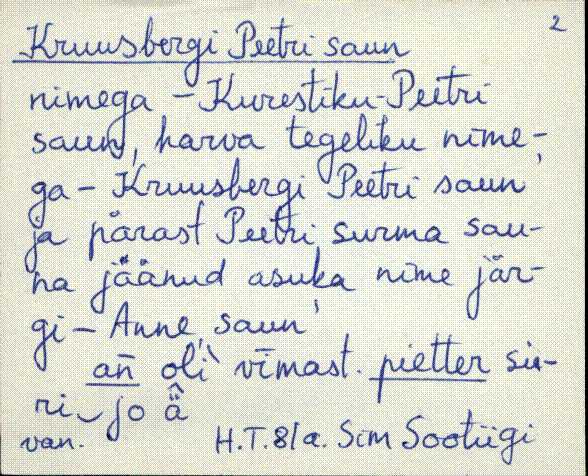 2
Kruusbergi Peetri saun
nimega - Kurestiku-Peetri
saun, harva tegeliku nime-
ga - Kruusbergi Peetri saun
ja pärast Peetri surma sau-
na jäänud asuka nime jär-
gi - Anne saun
añ oli vīmast. pietter su-
ri jo ǟ
van. H.T. 81a. Sim Sootiigi